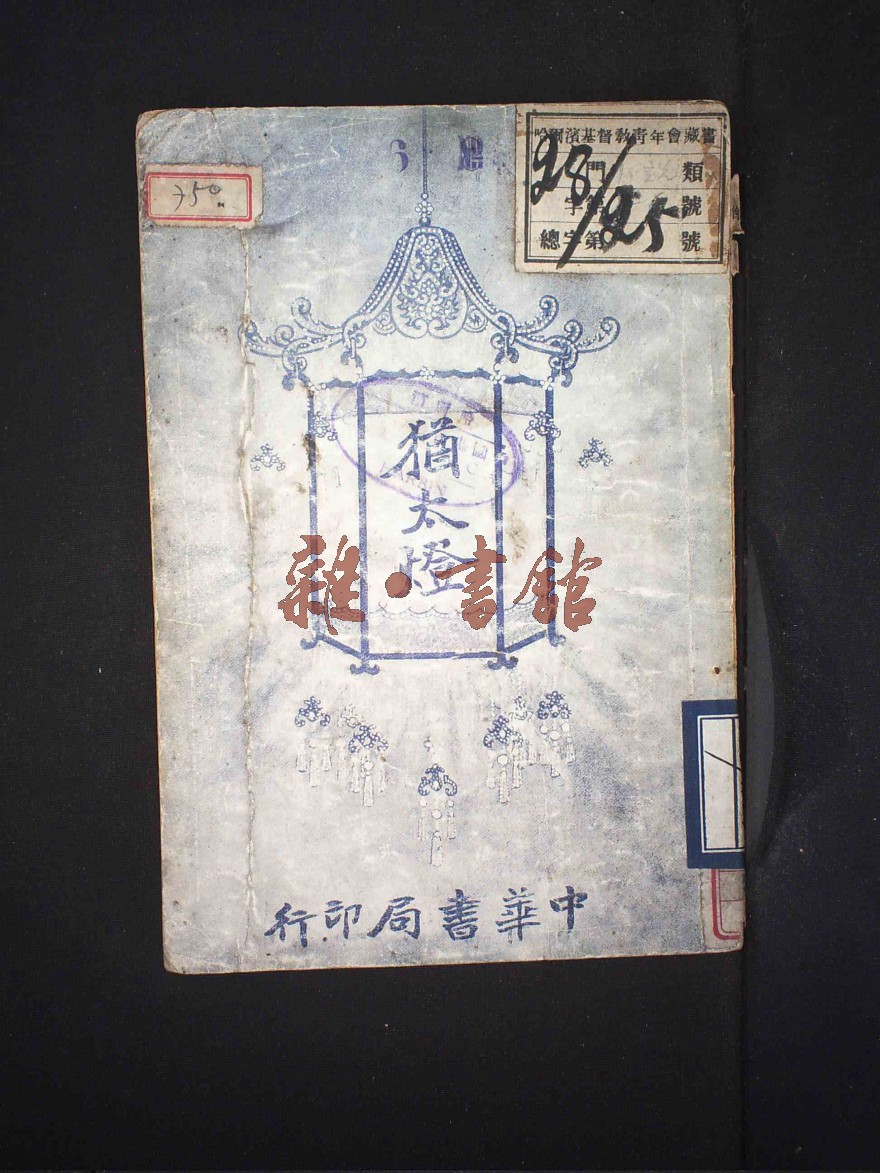 哈爾濱基督教青年會藏書
門 類
字第 號
總字第 號
28/25
750
6
猶太燈
雜·書館
中華書局印行